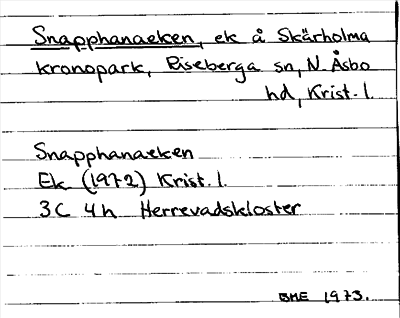 Snapphanaeken, ek å Skärholma
kronopark, Riseberga sn, N Åsbo
hd, Krist. l.
Snapphanaeken
Ek (1972) Krist. l.
3C 4h Herrevadskloster
BME 1973.